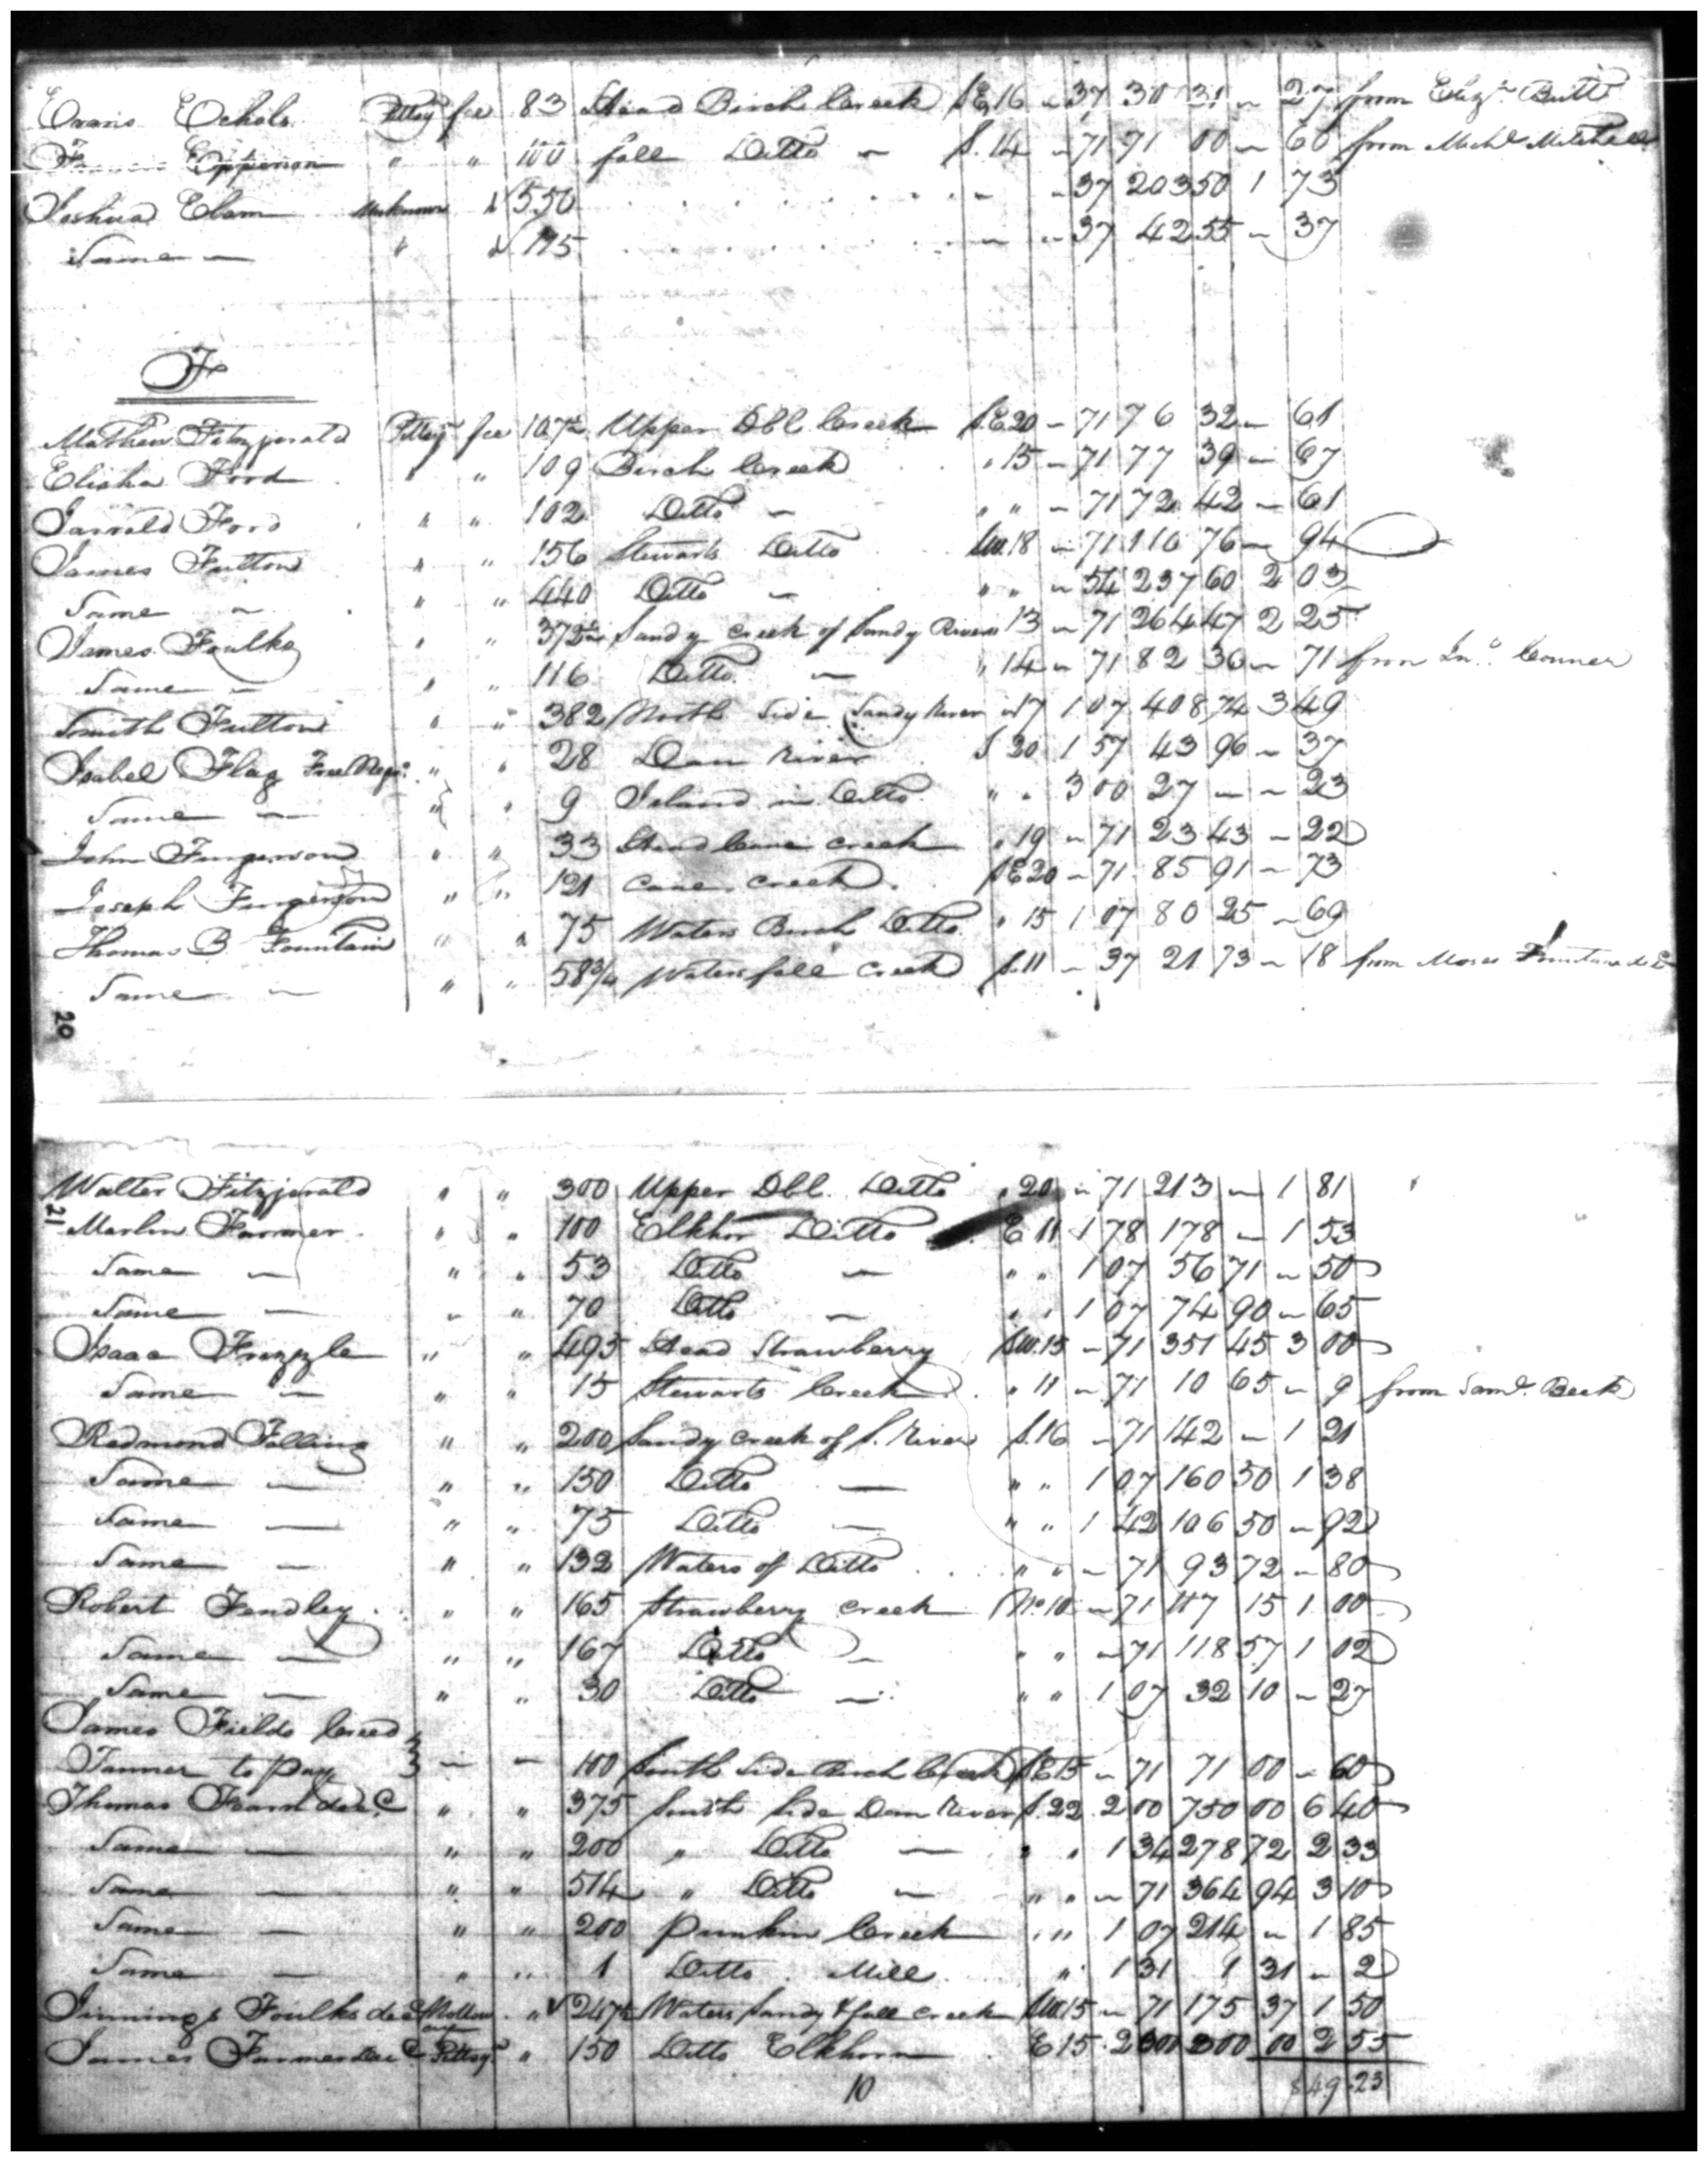 Evans Echols Pittsy fee 83 Head Birch Creek S.E. 16 " 37 30 31 " 27 from Eliz. Butt
Epperson " " 100 fall Ditto – S. 14 " 71 71 00 " 60 from Michl Mitchell
Joshua Elam Unknown 550 – " 37 203 50 1 73
Same – " 115 – " 37 42 55 – 37
F
Mathew Fitzjerald Pittsy fee 107 1/2 Upper Dbl Creek S.E 20 – 71 76 32 – 61
Elisha Ford " " 109 Birch Creek " 15 – 71 77 39 – 67
Jarrald Ford " " 102 Ditto – " " – 71 72 42 – 61
James Fulton " " 156 Stewarts Ditto SW. 18 – 71 110 76 – 94
Same – " " 440 Ditto – " " – 54 237 60 2 03
James Foulks " " 372 1/2 Sandy Creek of Sandy River 13 – 71 264 47 2 25
Same – " " 116 Ditto – " 14 – 71 82 36 – 71 from Jno. Conner
Smith Fulton " " 382 North Side Sandy River W 17 1 07 408 74 3 49
Isabel Flag Free Nego. " " 28 Dan River S 20 1 57 43 96 – 37
Same – " " 9 Island in Ditto " " 3 00 27 – – 23
John Fungerson " " 33 Head Cane Creek " 19 – 71 23 43 – 22
Joseph Fungerson " " 121 Cane Creek S E 20 – 71 85 91 – 73
Thomas B. Fountain " " 75 Waters Birch Ditto " 15 1 07 80 25 – 69
Same – " " 58 3/4 Waters fall Creek S. 11 – 37 21 73 – 18 from Moses Fountain
20
Walter Fitzjerald " " 300 Upper Dbl. Ditto " 20 – 71 213 – 1 81
21
Marlin Farmer " " 100 Elkhor Ditto E 11 1 78 178 – 1 53
Same – " " 53 Ditto – " " 1 07 56 71 – 50
Same – " " 70 Ditto – " " 1 07 74 90 – 65
Isaac Frizzle " " 495 Head Strawberry SW. 15 – 71 351 45 3 00
Same – " " 15 Stewarts Creek " 11 – 71 10 65 – 9 from Saml. Beck
Redmond Falling " " 200 Sandy Creek of S. River S. 16 – 71 142 – 1 21
Same – " " 150 Ditto – " " 1 07 160 50 1 38
Same – " " 75 Ditto – " " 1 42 106 50 – 92
Same – " " 132 Waters of Ditto " " – 71 93 72 – 80
Robert Fendley " " 165 Strawberry Creek No. 10 – 71 117 15 1 00
Same – " " 167 Ditto – " " – 71 118 57 1 02
Same – " " 30 Ditto – " " 1 07 32 10 – 27
James Fields Creed
Tanner to pay } – – 100 South Side Birch Creek S E 15 – 71 71 00 – 60
Thomas Fearn decd " " 375 South Side Dan River S. 22 2 00 750 00 6 40
Same – " " 200 " Ditto – " " 1 34 278 72 2 33
Same – " " 514 " Ditto – " " – 71 364 94 3 10
Same – " " 200 Punkin Creek " " 1 07 214 – 1 85
Same – " " 1 Ditto Mill " 1 31 1 31 – 2
Jinnings Foulks decd " 247 1/2 Waters Sandy & fall Creek SW. 15 – 71 175 37 1 50
James Farmer decd Pittsy " 150 Ditto Elkhorn E 15 2 00 300 00 2 55
10
$49.23